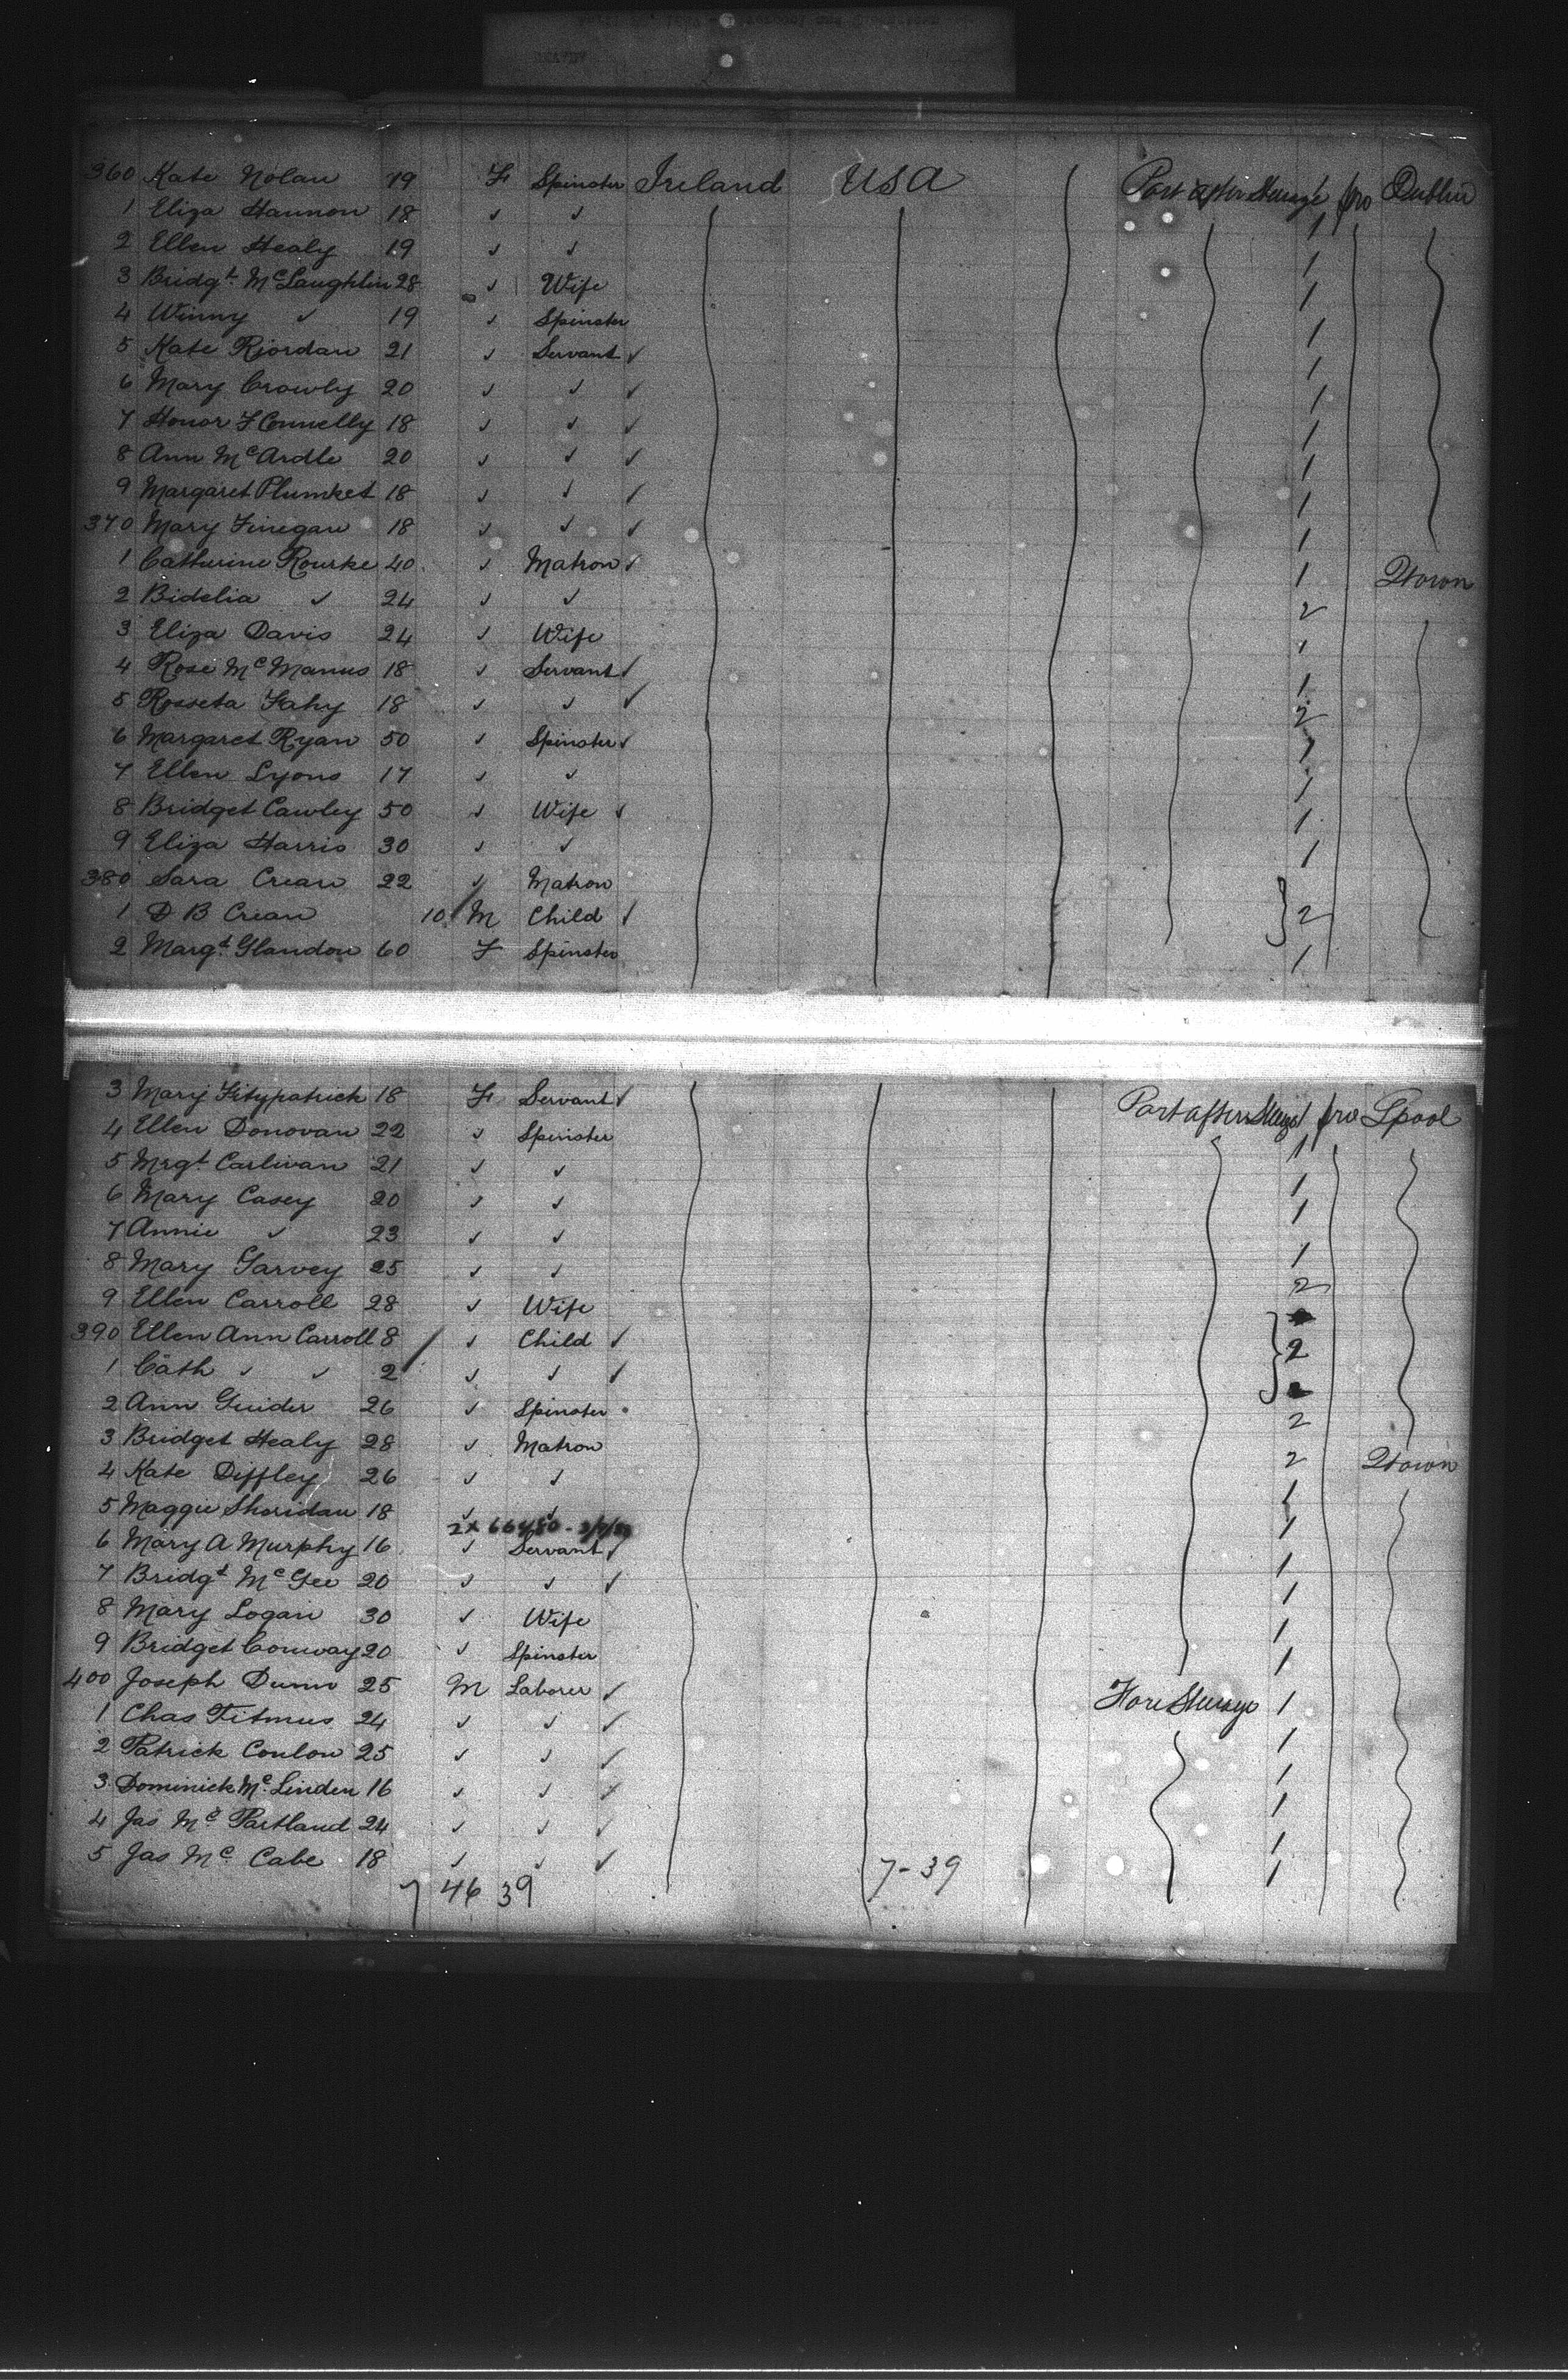 360 Kate Nolan 19 F Spinster Ireland USA Port after Steerage 1 pro Dublin
1 Eliza Hannon 18 ✓ ✓ 1
2 Ellen Healy 19 ✓ ✓ 1
3 Bridgt McLaughlin 28 ✓ Wife 1
4 Winny ✓ 19 ✓ Spinster 1
5 Kate Riordan 21 ✓ Servant ✓ 1
6 Mary Crowly 20 ✓ ✓ ✓ 1
7 Honor F Connelly 18 ✓ ✓ ✓ 1
8 Ann McArdle 20 ✓ ✓ ✓ 1
9 Margaret Plumket 18 ✓ ✓ ✓ 1
370 Mary Finegan 18 ✓ ✓ ✓ 1
1 Catherine Rourke 40 ✓ Matron ✓ 1 Qtown
2 Bidelia ✓ 24 ✓ ✓ 2
3 Eliza Davis 24 ✓ Wife 1
4 Rose McManus 18 ✓ Servant ✓ 1
5 Rosseta Fahy 18 ✓ ✓ ✓ 2
6 Margaret Ryan 50 ✓ Spinster ✓ 1
7 Ellen Lyons 17 ✓ ✓ 1
8 Bridget Cawley 50 ✓ Wife ✓ 1
9 Eliza Harris 30 ✓ ✓ 1
380 Sara Crean 22 ✓ Matron
1 D B Crean 10 M Child ✓ 2
2 Margt Glandon 60 F Spinster 1
3 Mary Fitzpatrick 18 F Servant ✓ Port after Steerage 1 pro Lpool
4 Ellen Donovan 22 ✓ Spinster 1
5 Mrgt Carlivan 21 ✓ ✓ 1
6 Mary Casey 20 ✓ ✓ 1
7 Annie ✓ 23 ✓ ✓ 1
8 Mary Garvey 25 ✓ ✓ 2
9 Ellen Carroll 28 ✓ Wife
390 Ellen Ann Carroll 8 ✓ Child ✓ 2
1 Cath ✓ ✓ 2 ✓ ✓ ✓
2 Ann Guider 26 ✓ Spinster 2
3 Bridget Healy 28 ✓ Matron 2 Qtown
4 Kate Diffley 26 ✓ ✓ 1
5 Maggie Sheridan 18 ✓ ✓ 1
2x 66480
6 Mary A Murphy 16 ✓ Servant ✓ 1
7 Bridgt McGee 20 ✓ ✓ ✓ 1
8 Mary Logan 30 ✓ Wife 1
9 Bridget Conway 20 ✓ Spinster 1
400 Joseph Dunn 25 M Laborer ✓ Fore Steerage 1
1 Chas Titmus 24 ✓ ✓ ✓ 1
2 Patrick Conlon 25 ✓ ✓ ✓ 1
3 Dominick McLinden 16 ✓ ✓ ✓ 1
4 Jas McPartland 24 ✓ ✓ ✓ 1
5 Jas McCabe 18 ✓ ✓ ✓ 1
7-39
7 46 39